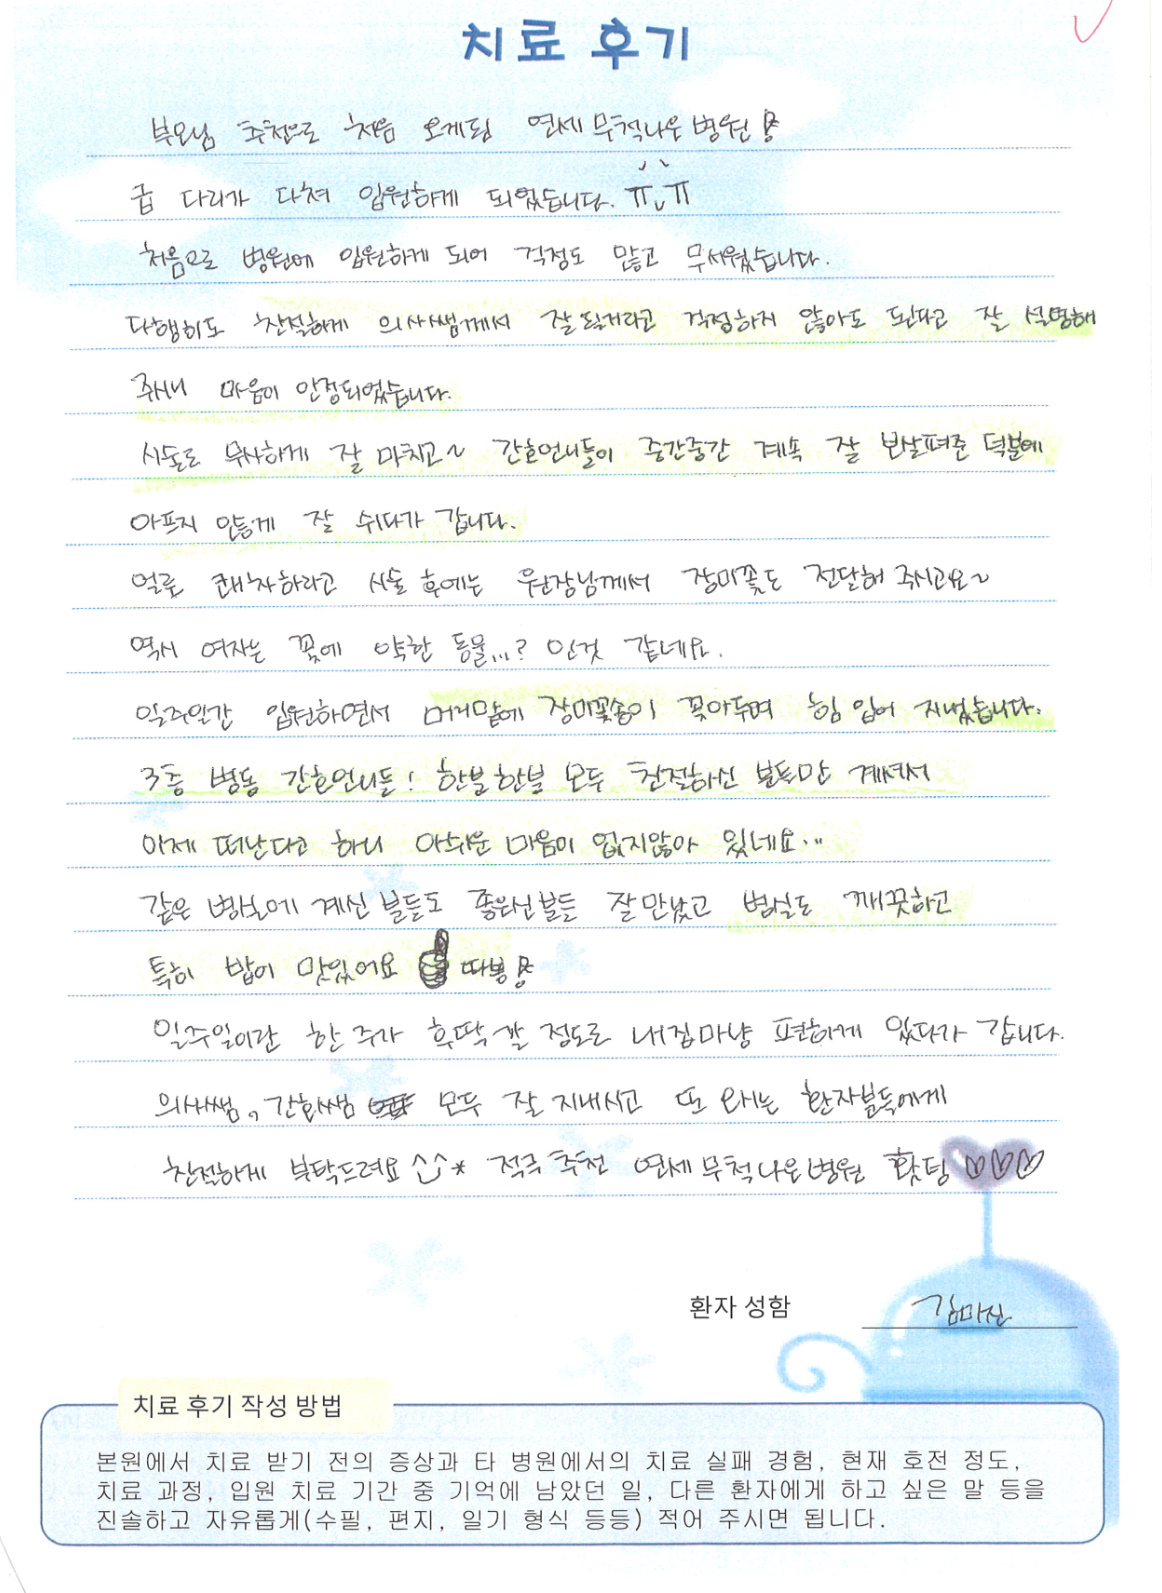 치료 후기
부모님 추천으로 처음 오게된 연세무척나은병원!
급 다리가 다쳐 입원하게 되었습니다. ㅠ.ㅠ
처음으로 병원에 입원하게 되어 걱정도 많고 무서웠습니다.
다행히도 친절하게 의사쌤께서 잘 될거라고 걱정하지 않아도 된다고 잘 설명해
주시니 마음이 안정되었습니다.
시술도 무사하게 잘 마치고~ 간호언니들이 중간중간 계속 잘 보살펴준 덕분에
아프지 않게 잘 쉬다가 갑니다.
얼른 쾌차하라고 시술 후에는 원장님께서 장미꽃도 전달해 주시고요~
역시 여자는 꽃에 약한 동물...? 인것 같네요.
일주일간 입원하면서 머리맡에 장미꽃송이 꽂아두며 힘 입어 지냈습니다.
3층 병동 간호언니들! 한분한분 모두 친절하신 분들만 계셔서
이제 떠난다고 하니 아쉬운 마음이 없지않아 있네요..
같은 병실에 계신 분들도 좋으신분들 잘 만났고 병실도 깨끗하고
특히 밥이 맛있어요 따봉!
일주일이란 한 주가 후딱 갈 정도로 내집마냥 편하게 있다가 갑니다.
의사쌤, 간호쌤 모두 잘 지내시고 또 오시는 환자분들에게
친절하게 부탁드려요 ^^* 적극 추천 연세무척나은병원 홧팅 ♡♡♡
환자 성함
치료 후기 작성 방법
본원에서 치료 받기 전의 증상과 타 병원에서의 치료 실패 경험, 현재 호전 정도,
치료 과정, 입원 치료 기간 중 기억에 남았던 일, 다른 환자에게 하고 싶은 말 등을
진솔하고 자유롭게(수필, 편지, 일기 형식 등등) 적어 주시면 됩니다.